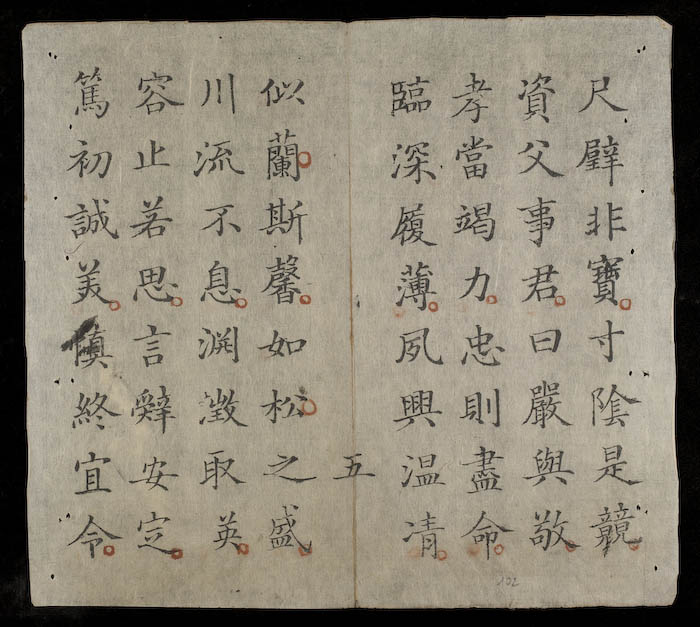 尺璧非寶寸陰是競
資父事君曰嚴與敬
孝當竭力忠則盡命
臨深履薄夙興温凊
五
似蘭斯馨如松之盛
川流不息淵澂取英
容止若思言辭安定
篤初誠美慎終宜令
102